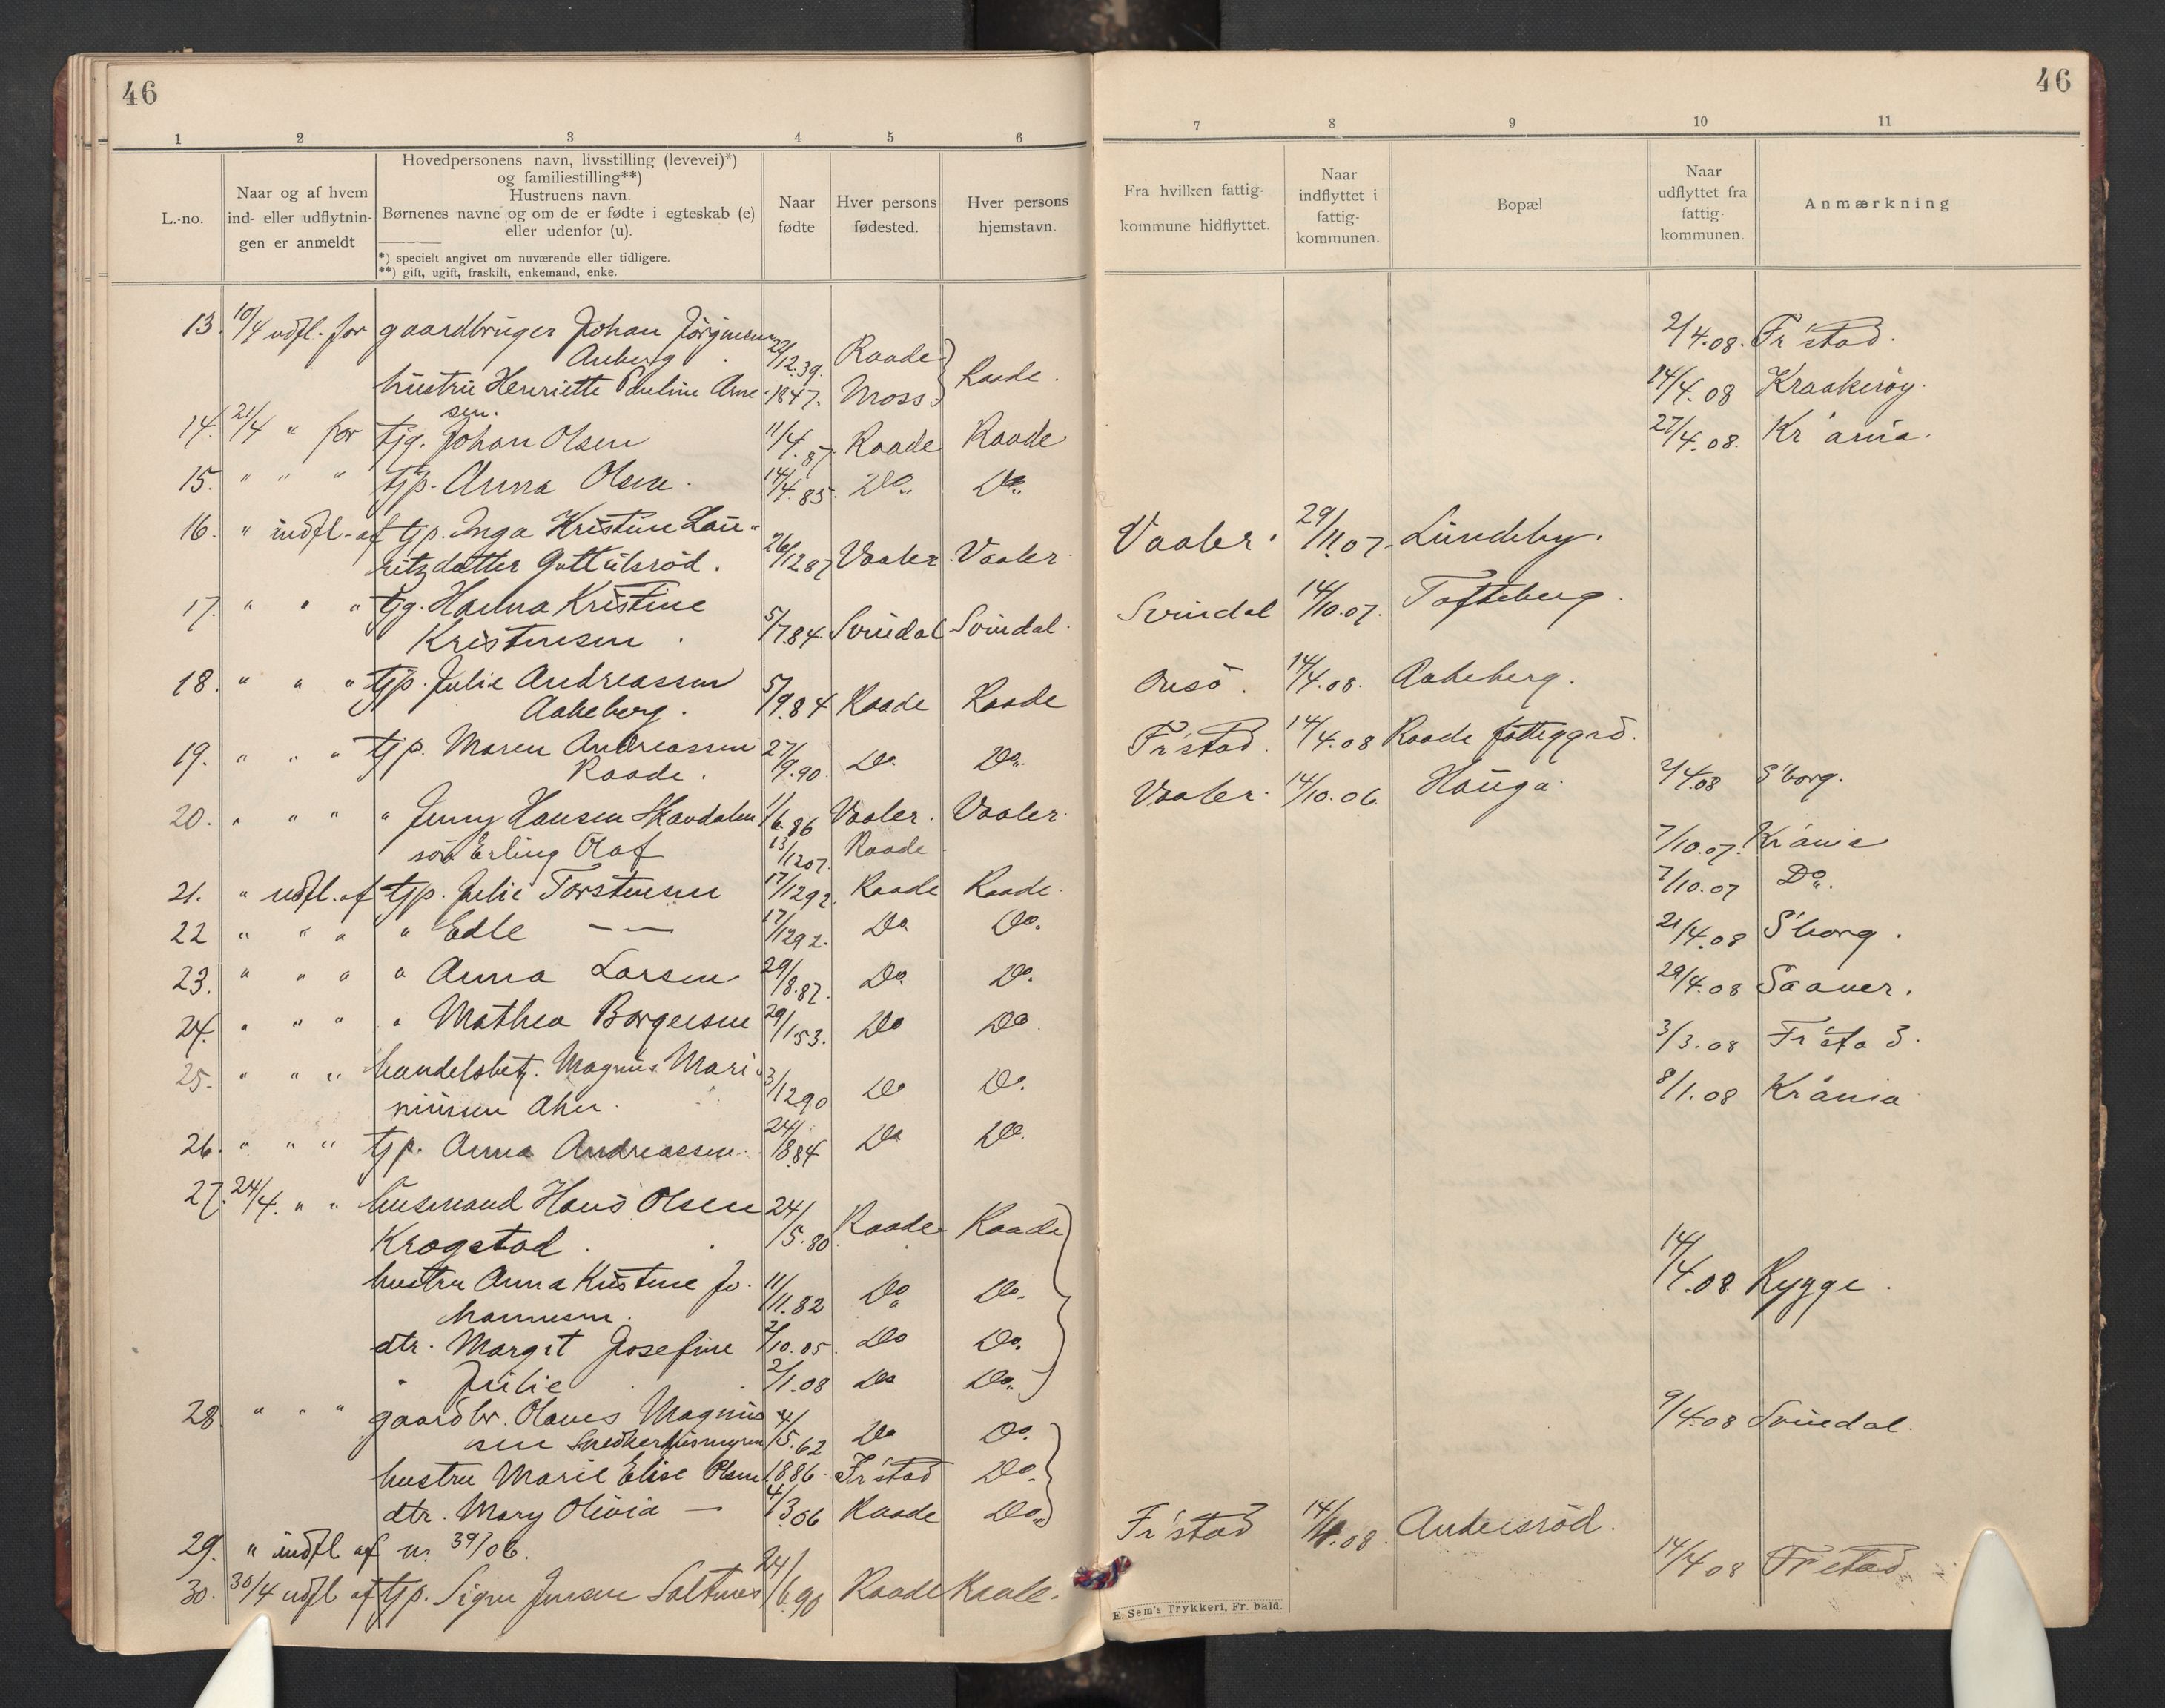 46
1 2 3 4 5 6
L.-no.
Naar og af hvem
ind- eller udflytnin-
gen er anmeldt
Hovedpersonens navn, livsstilling (levevei)*)
og familiestilling**)
Hustruens navn.
Børnenes navne og om de er fødte i egteskab (e)
eller udenfor (u).
*) specielt angivet om nuværende eller tidligere.
**) gift, ugift, fraskilt, enkemand, enke.
Naar
fødte
Hver persons
fødested.
Hver persons
hjemstavn.
13. 10/4 udfl. for gaardbruger Johan Jörgensen
Auberg 22/12.39. Raade
hustru Henriette Pauline Arne- 1847. Moss Raade.
sen.
14. 21/4 " for tjg. Johan Olsen 11/4.87. Raade Raade
15. " " " tjp. Anna Olsen. 14/4.85. Do. Do.
16. " indfl. af tjp. Inga Kristine Lau-
ritzdatter Guttulsröd. 26/12 87 Vaaler. Vaaler.
17. " " " tjg. Hanna Kristine
Kristensen. 5/7.84. Svindal Svindal.
18. " " " tjp. Julie Andreassen
Aakeberg. 5/9.84 Raade Raade
19. " " " tjp. Maren Andreassen 27/9.90. Do. Do.
Raade.
20. " " " " Jenny Hansen Skaudalen 1/6.86 Vaaler. Vaaler.
søn Erling Olaf 13/12 07. Raade
21. " udfl. af tjp. Julie Torstensen 17/12 92. Raade Raade.
22 " " " " Edle — — 17/12 92. Do. Do.
23. " " " " Anna Larsen 29/8.87. Do. Do.
24. " " " " Mathea Borgersen 29/1 53. Do Do.
25. " " " handelsbetj. Magnus Mari-
niusen Aker. 3/12 90 Do Do.
26. " " " tjp. Anna Andreassen. 24/8 84 Do Do.
27. 24/4. " " husmand Hans Olsen 24/5.80. Raade Raade
Krogstad.
hustru Anna Kristine Jo- 11/11.82 Do. Do.
hannesen.
dtr. Margit Josefine 2/10.05. Do Do.
" Julie 2/1.08 Do Do.
28. " " " gaardbr. Olaves Magnus-
sen 4/5.62 Do Do.
hustru Marie Elise Olsen 1886. Fr'stad Do.
dtr. Mary Olivia — 4/3 06 Raade Do.
29. " indfl af n. 39/06.
30. 30/4 udfl af tjp. Signe Jensen Saltnes 24/6.90 Raade Raade.
46
7 8 9 10 11
Fra hvilken fattig-
kommune hidflyttet.
Naar
indflyttet i
fattig-
kommunen.
Bopæl
Naar
udflyttet fra
fattig-
kommunen.
Anmærkning
2/4.08. Fr'stad.
14/4.08 Kraakeröy.
27/4.08. Kr'ania.
Vaaler. 29/11.07. Lundeby.
Svindal 14/10.07. Tofteberg.
Onsö. 14/4.08. Aakeberg.
Fr'stad. 14/4.08 Raade fattiggrd.
Vaaler. 14/10.06 Hauga. 2/4.08 S'borg.
7/10.07. Kr'ania
7/10.07 Do.
21/4.08 S'borg.
29/4.08 Saaner.
3/3.08 Fr'stad.
8/1.08 Kr'ania
14/4.08 Rygge.
9/4.08 Svindal.
Fr'stad 14/4.08. Andersröd.
14/4 08 Fr'stad.
E. Sem's Trykkeri, Fr. hald.